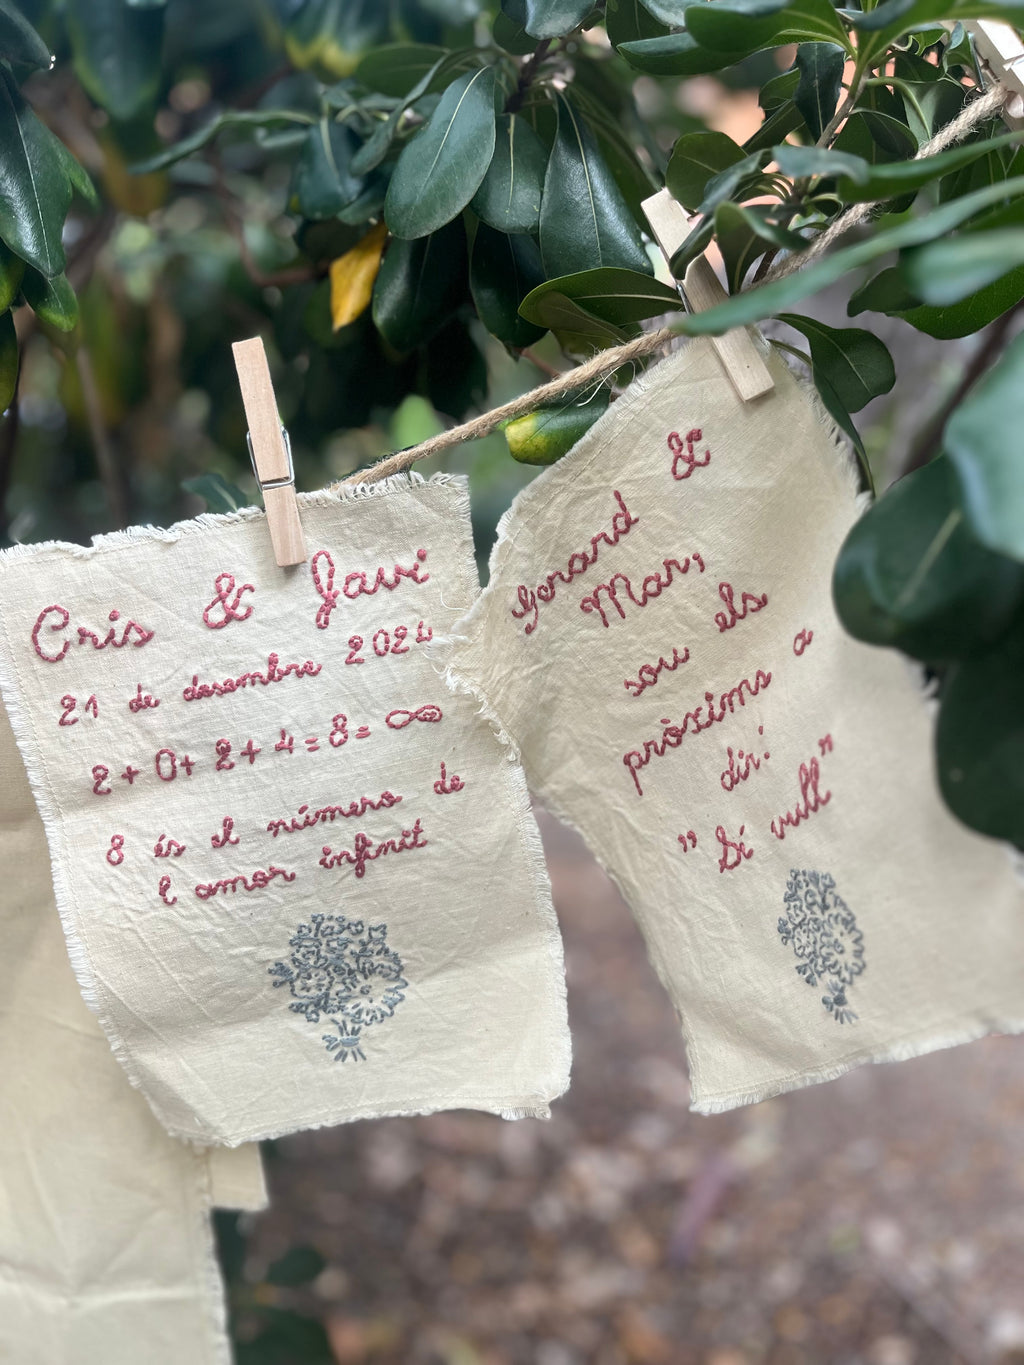 Cris & Javi
21 de desembre 2024
2 + 0 + 2 + 4 = 8 = ∞
8 és el número de
l amor infinit
Gerard &
Mar,
sou els
pròxims a
dir:
"Sí vull"